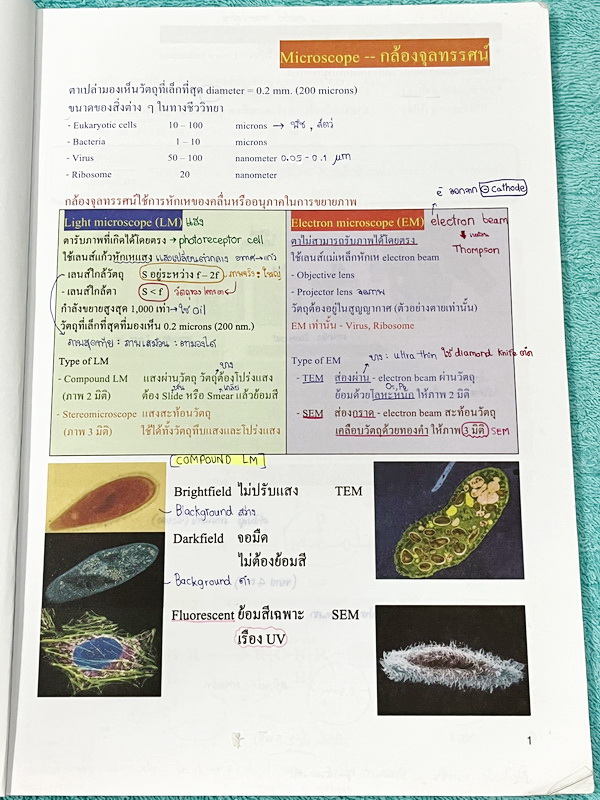 Microscope -- กล้องจุลทรรศน์
ตาเปล่ามองเห็นวัตถุที่เล็กที่สุด diameter = 0.2 mm. (200 microns)
ขนาดของสิ่งต่าง ๆ ในทางชีววิทยา
- Eukaryotic cells 10 – 100 microns → พืช, สัตว์
- Bacteria 1 – 10 microns
- Virus 50 – 100 nanometer 0.05 - 0.1 μm
- Ribosome 20 nanometer
กล้องจุลทรรศน์ใช้การหักเหของคลื่นหรืออนุภาคในการขยายภาพ
e⁻ ออกจาก ⊖ cathode
Light microscope (LM) แสง
ตารับภาพที่เกิดได้โดยตรง → photoreceptor cell
ใช้เลนส์แก้วหักเหแสง
- เลนส์ใกล้วัตถุ S อยู่ระหว่าง f – 2f
- เลนส์ใกล้ตา S < f
กำลังขยายสูงสุด 1,000 เท่า → ใช้ oil
วัตถุที่เล็กที่สุดที่มองเห็น 0.2 microns (200 nm.)
ภาพสุดท้าย : ภาพเสมือน : ตามองได้
Type of LM
บาง
- Compound LM แสงผ่านวัตถุ วัตถุต้องโปร่งแสง
(ภาพ 2 มิติ) ต้อง Slide หรือ Smear แล้วย้อมสี
- Stereomicroscope แสงสะท้อนวัตถุ
(ภาพ 3 มิติ) ใช้ได้ทั้งวัตถุทึบแสงและโปร่งแสง
Electron microscope (EM) electron beam
Thompson
ตาไม่สามารถรับภาพได้โดยตรง
ใช้เลนส์แม่เหล็กหักเห electron beam
- Objective lens
- Projector lens ฉายภาพ
วัตถุต้องอยู่ในสูญญากาศ (ตัวอย่างตายเท่านั้น)
EM เท่านั้น - Virus, Ribosome
Type of EM บาง : ultra-thin ใช้ diamond knife ตัด
- TEM ส่องผ่าน - electron beam ผ่านวัตถุ
ย้อมด้วยโลหะหนัก ให้ภาพ 2 มิติ
- SEM ส่องกราด - electron beam สะท้อนวัตถุ
เคลือบวัตถุด้วยทองคำ ให้ภาพ 3 มิติ SEM
COMPOUND LM
Brightfield ไม่ปรับแสง TEM
Blackground สว่าง
Darkfield จอมืด
ไม่ต้องย้อมสี
Background ดำ
Fluorescent ย้อมสีเฉพาะ SEM
เรือง UV
1